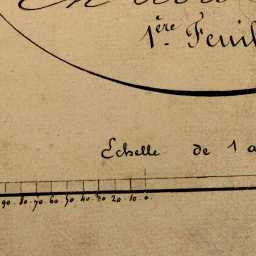 1ère Feuil
Echelle de 1 a
90. 80. 70. 60. 50. 40. 30. 20. 10. 0.